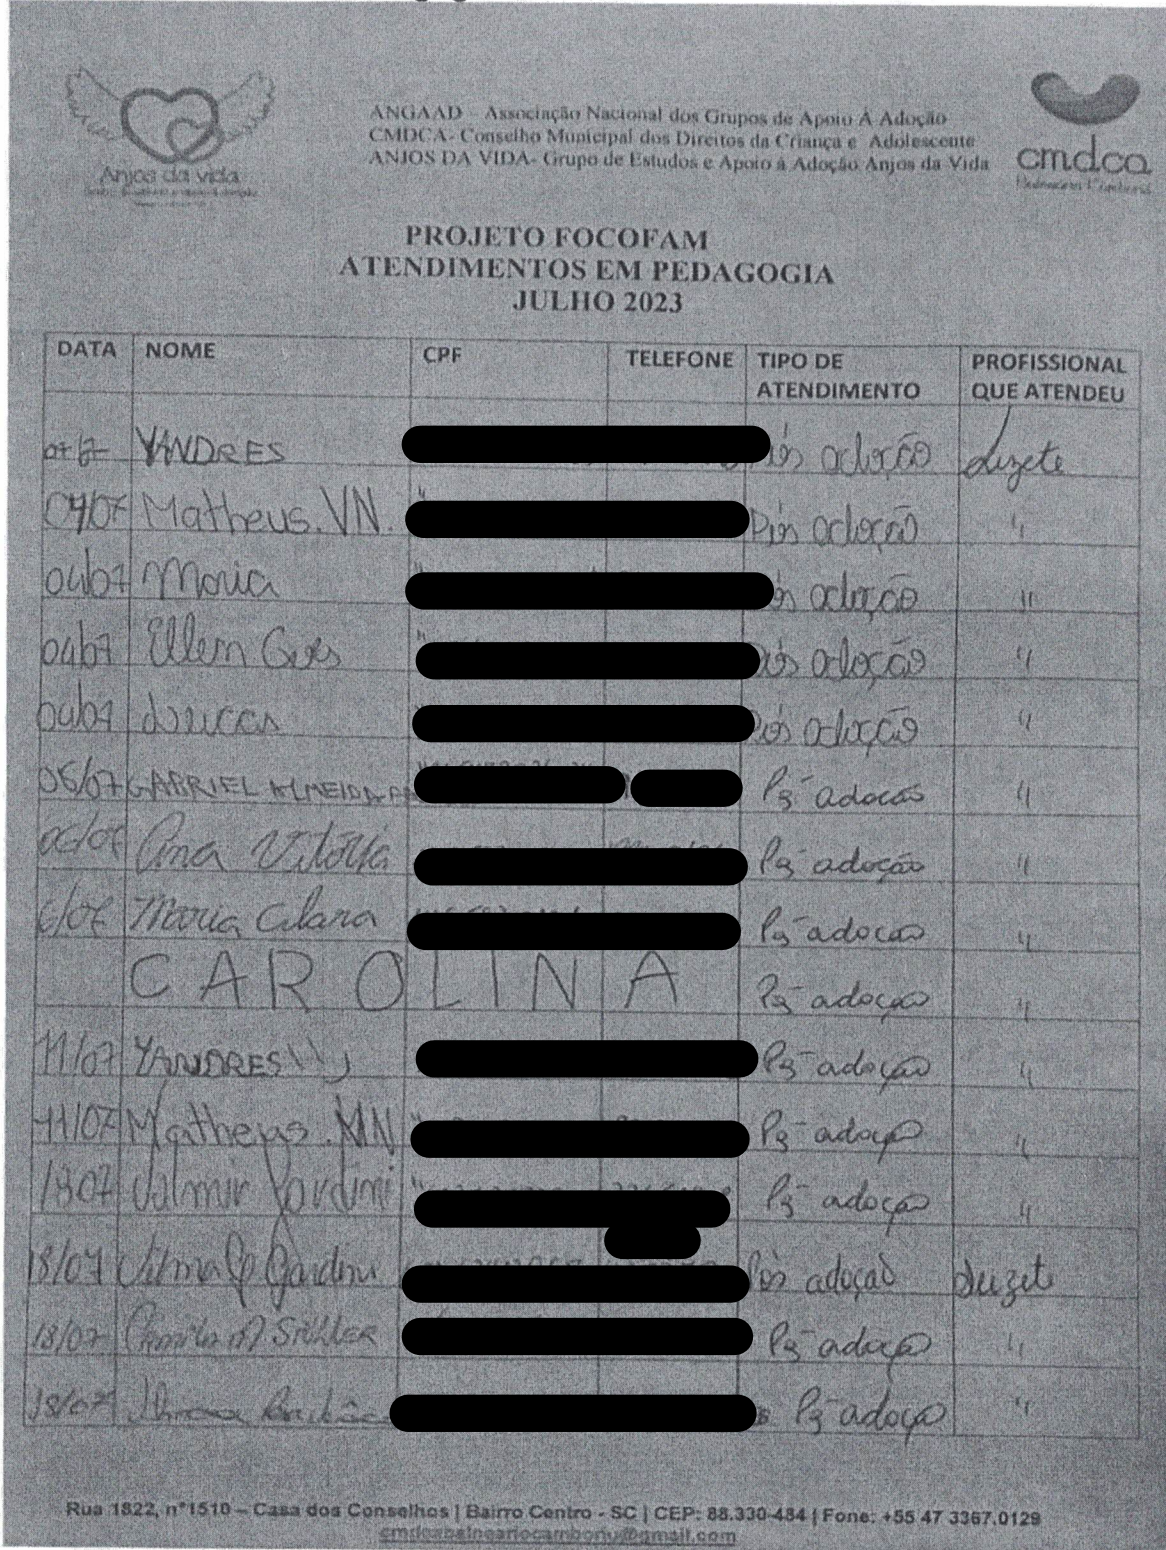 Anjos da vida
ANGAAD - Associação Nacional dos Grupos de Apoio À Adoção
CMDCA- Conselho Municipal dos Direitos da Criança e Adolescente
ANJOS DA VIDA- Grupo de Estudos e Apoio à Adoção Anjos da Vida
cmdca
PROJETO FOCOFAM
ATENDIMENTOS EM PEDAGOGIA
JULHO 2023
DATA NOME CPF TELEFONE TIPO DE ATENDIMENTO PROFISSIONAL QUE ATENDEU
YANDRES Pós adoção Luzete
04/07 Matheus.VN. Pós adoção "
04/07 Maria Pós adoção "
04/07 Ellem Pós adoção "
04/07 Luccas Pós adoção "
05/07 GABRIEL ALMEIDA Pós adocão "
Ana Vitória Pós adoção "
Maria Clara Pós adocão "
CAROLINA Pós adoção "
11/07 YANDRES Pós adoção "
11/07 Matheus.VN Pós adoção "
Pós adoção "
18/07 Pós adoção Luzete
18/07 Pós adoção "
18/07 Pós adoção "
Rua 1822, n°1510 – Casa dos Conselhos | Bairro Centro - SC | CEP: 88.330-484 | Fone: +55 47 3367.0129
cmdcabalneariocamboriu@gmail.com